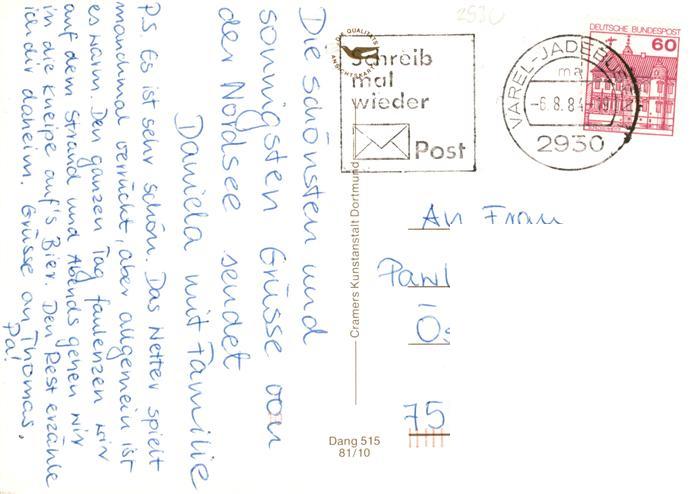 Die schönsten und
sonnigsten Grüsse von
der Nordsee sendet
Daniela mit Familie
P.S. Es ist sehr schön. Das Wetter spielt
manchmal verrückt, aber allgemein ist
es warm. Den ganzen Tag faulenzen wir
auf dem Strand und Abends gehen wir
in die Kneipe auf's Bier. Den Rest erzähle
ich dir daheim. Grüsse an Thomas.
Pa!
2930
DIE QUALITÄTS
ANSICHTSKARTE
Schreib
mal
wieder
Post
VAREL-JADEBUSEN
ma
-6.8.84-19
2930
DEUTSCHE BUNDESPOST
60
An Frau
Cramers Kunstanstalt Dortmund
75
Dang 515
81/10